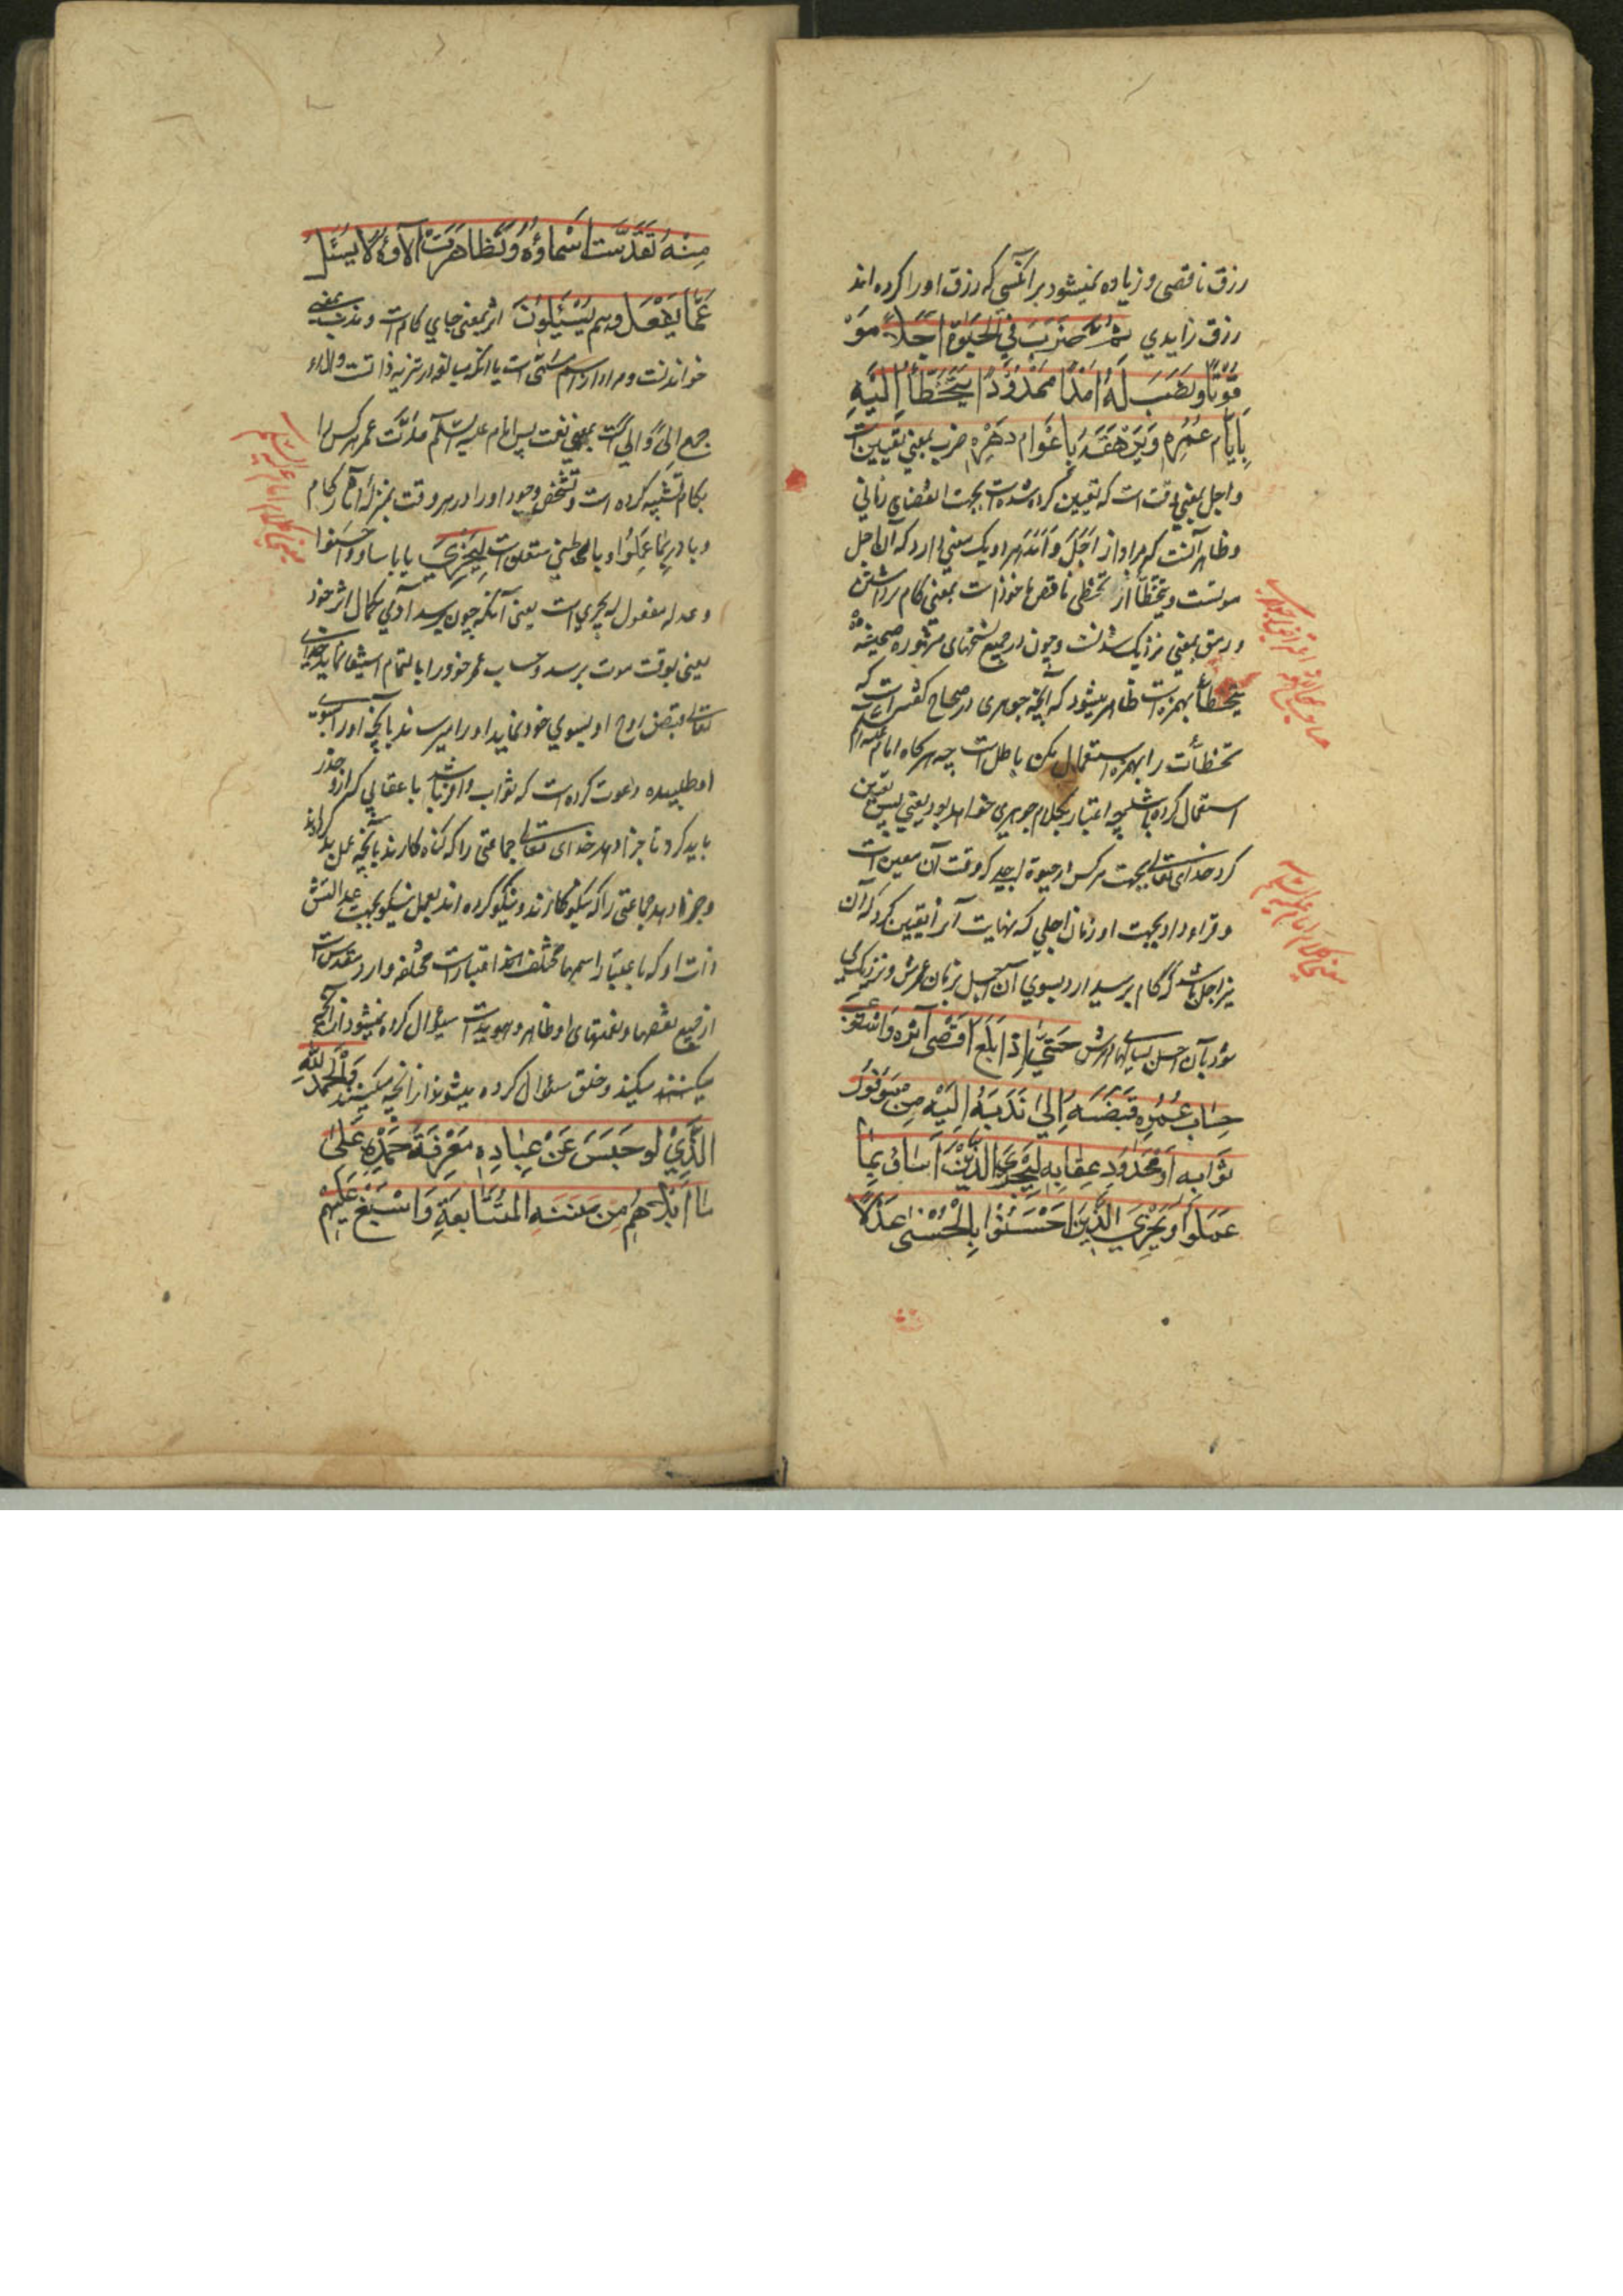 رزق ناقصی و زیاده نمیشود بر آنکسی که رزق او را کرده اند
رزق زایدی ثُمَّ ضَرَبَ فِي الْحَيٰوةِ اَجَلًا مَوْ
قُوْتًا وَنَصَبَ لَهُ اَمَدًا مَحْدُوْدًا يَتَخَطَّأُ اِلَيْهِ
بِاَيَّامِ عُمُرِهِ وَيَرْهَقُهُ بِاَعْوَامِ دَهْرِهِ ضرب بمعنی تعیین است
و اجل بمعنی وقت است که تعیین کرده شده است بجهت انقضای زمانی
و ظاهر آنست که مراد از اَجَلْ وَاَمَدْ هر دو یک معنی دارد که آن اجل
موتست و یتخطّأ از تخطّی ناقص ماخوذ است بمعنی گام برداشتن
و رهق بمعنی نزدیک شدنست و چون در جمیع نسخهای مشهوره صحیفه
یتخطّأ بهمزه است ظاهر میشود که آنچه جوهری در صحاح گفته است که
تخطّأت را بهمزه استعمال مکن باطل است چه هرگاه امام علیه السلام
استعمال کرده باشد چه اعتبار بکلام جوهری خواهد بود یعنی پس تعیین
کرد خدای تعالی بجهت هرکس در حیوة اجلی که وقت آن معین است
و قرار داد بجهت او زمان اجلی که نهایت آنرا تعیین کرد که آن
نیز اجل باشد که گام بر میدارد بسوی آن اجل بزمان عمرش و نزدیک می
شود بآن اجل بسالهای دهرش حَتّٰى اِذَا بَلَغَ اَقْصٰى اَثَرِهِ وَاسْتَوْعَبَ
حِسَابَ عُمُرِهِ قَبَضَهُ اِلٰى مَا نَدَبَهُ اِلَيْهِ مِنْ مَوْفُوْرِ
ثَوَابِهِ اَوْ مَحْذُوْرِ عِقَابِهِ لِيَجْزِيَ الَّذِيْنَ اَسَاؤُا بِمَا
عَمِلُوْا وَيَجْزِيَ الَّذِيْنَ اَحْسَنُوْا بِالْحُسْنٰى عَدْلًا
مِنْهُ تَقَدَّسَتْ اَسْمَاؤُهُ وَتَظَاهَرَتْ اٰلَاؤُهُ لَا يُسْئَلُ
عَمَّا يَفْعَلُ وَهُمْ يُسْئَلُوْنَ اثر بمعنی جای گام است و ندب بمعنی
خواندنست و مراد از اسم مسمّی است یا آنکه مبالغه در تنزیه ذاتست و آلاء
جمع اِلًی وَاَلًی است بمعنی نعمت پس امام علیه السلام مدّت عمر هرکس را
بگام تشبیه کرده است و تشخّص وجود او را در هر وقت بمنزله اثر گام
و با در بِمَا عَمِلُوا و بالحسنی متعلق است لِيَجْزِيَ یا با ساؤا و احسنوا
و عدلا مفعول له یجزی است یعنی آنکه چون برسد آدمی بکمال اثر خود
یعنی بوقت موت برسد و حساب عمر خود را بالتمام استیفا نماید خدای
تعالی قبض روح او بسوی خود نماید او را میرساند بآنچه او را بسوی
او طلبیده و دعوت کرده است که ثواب وافر باشد یا عقابی که از او حذر
باید کرد تا جزا دهد خدای تعالی جماعتی را که گناه کارند بآنچه عمل بد کرده اند
و جزا دهد جماعتی را که نیکوکارند و نیکو کرده اند بعمل نیکو بجهت عدالتش
ذات او که باعتبار اسمها مختلف اخذ اعتبارات مختلفه دارد مقدس است
از جمیع نقصها و نعمتهای او ظاهر و هویداست سؤال کرده نمیشود از آنچه
میکند و خلق سئوال کرده میشوند از آنچه میکنند وَالْحَمْدُ لِلّٰهِ
الَّذِيْ لَوْ حَبَسَ عَنْ عِبَادِهِ مَعْرِفَةَ حَمْدِهِ عَلٰى
مَا اَبْلَاهُمْ مِنْ مِنَنِهِ الْمُتَتَابِعَةِ وَاَسْبَغَ عَلَيْهِمْ